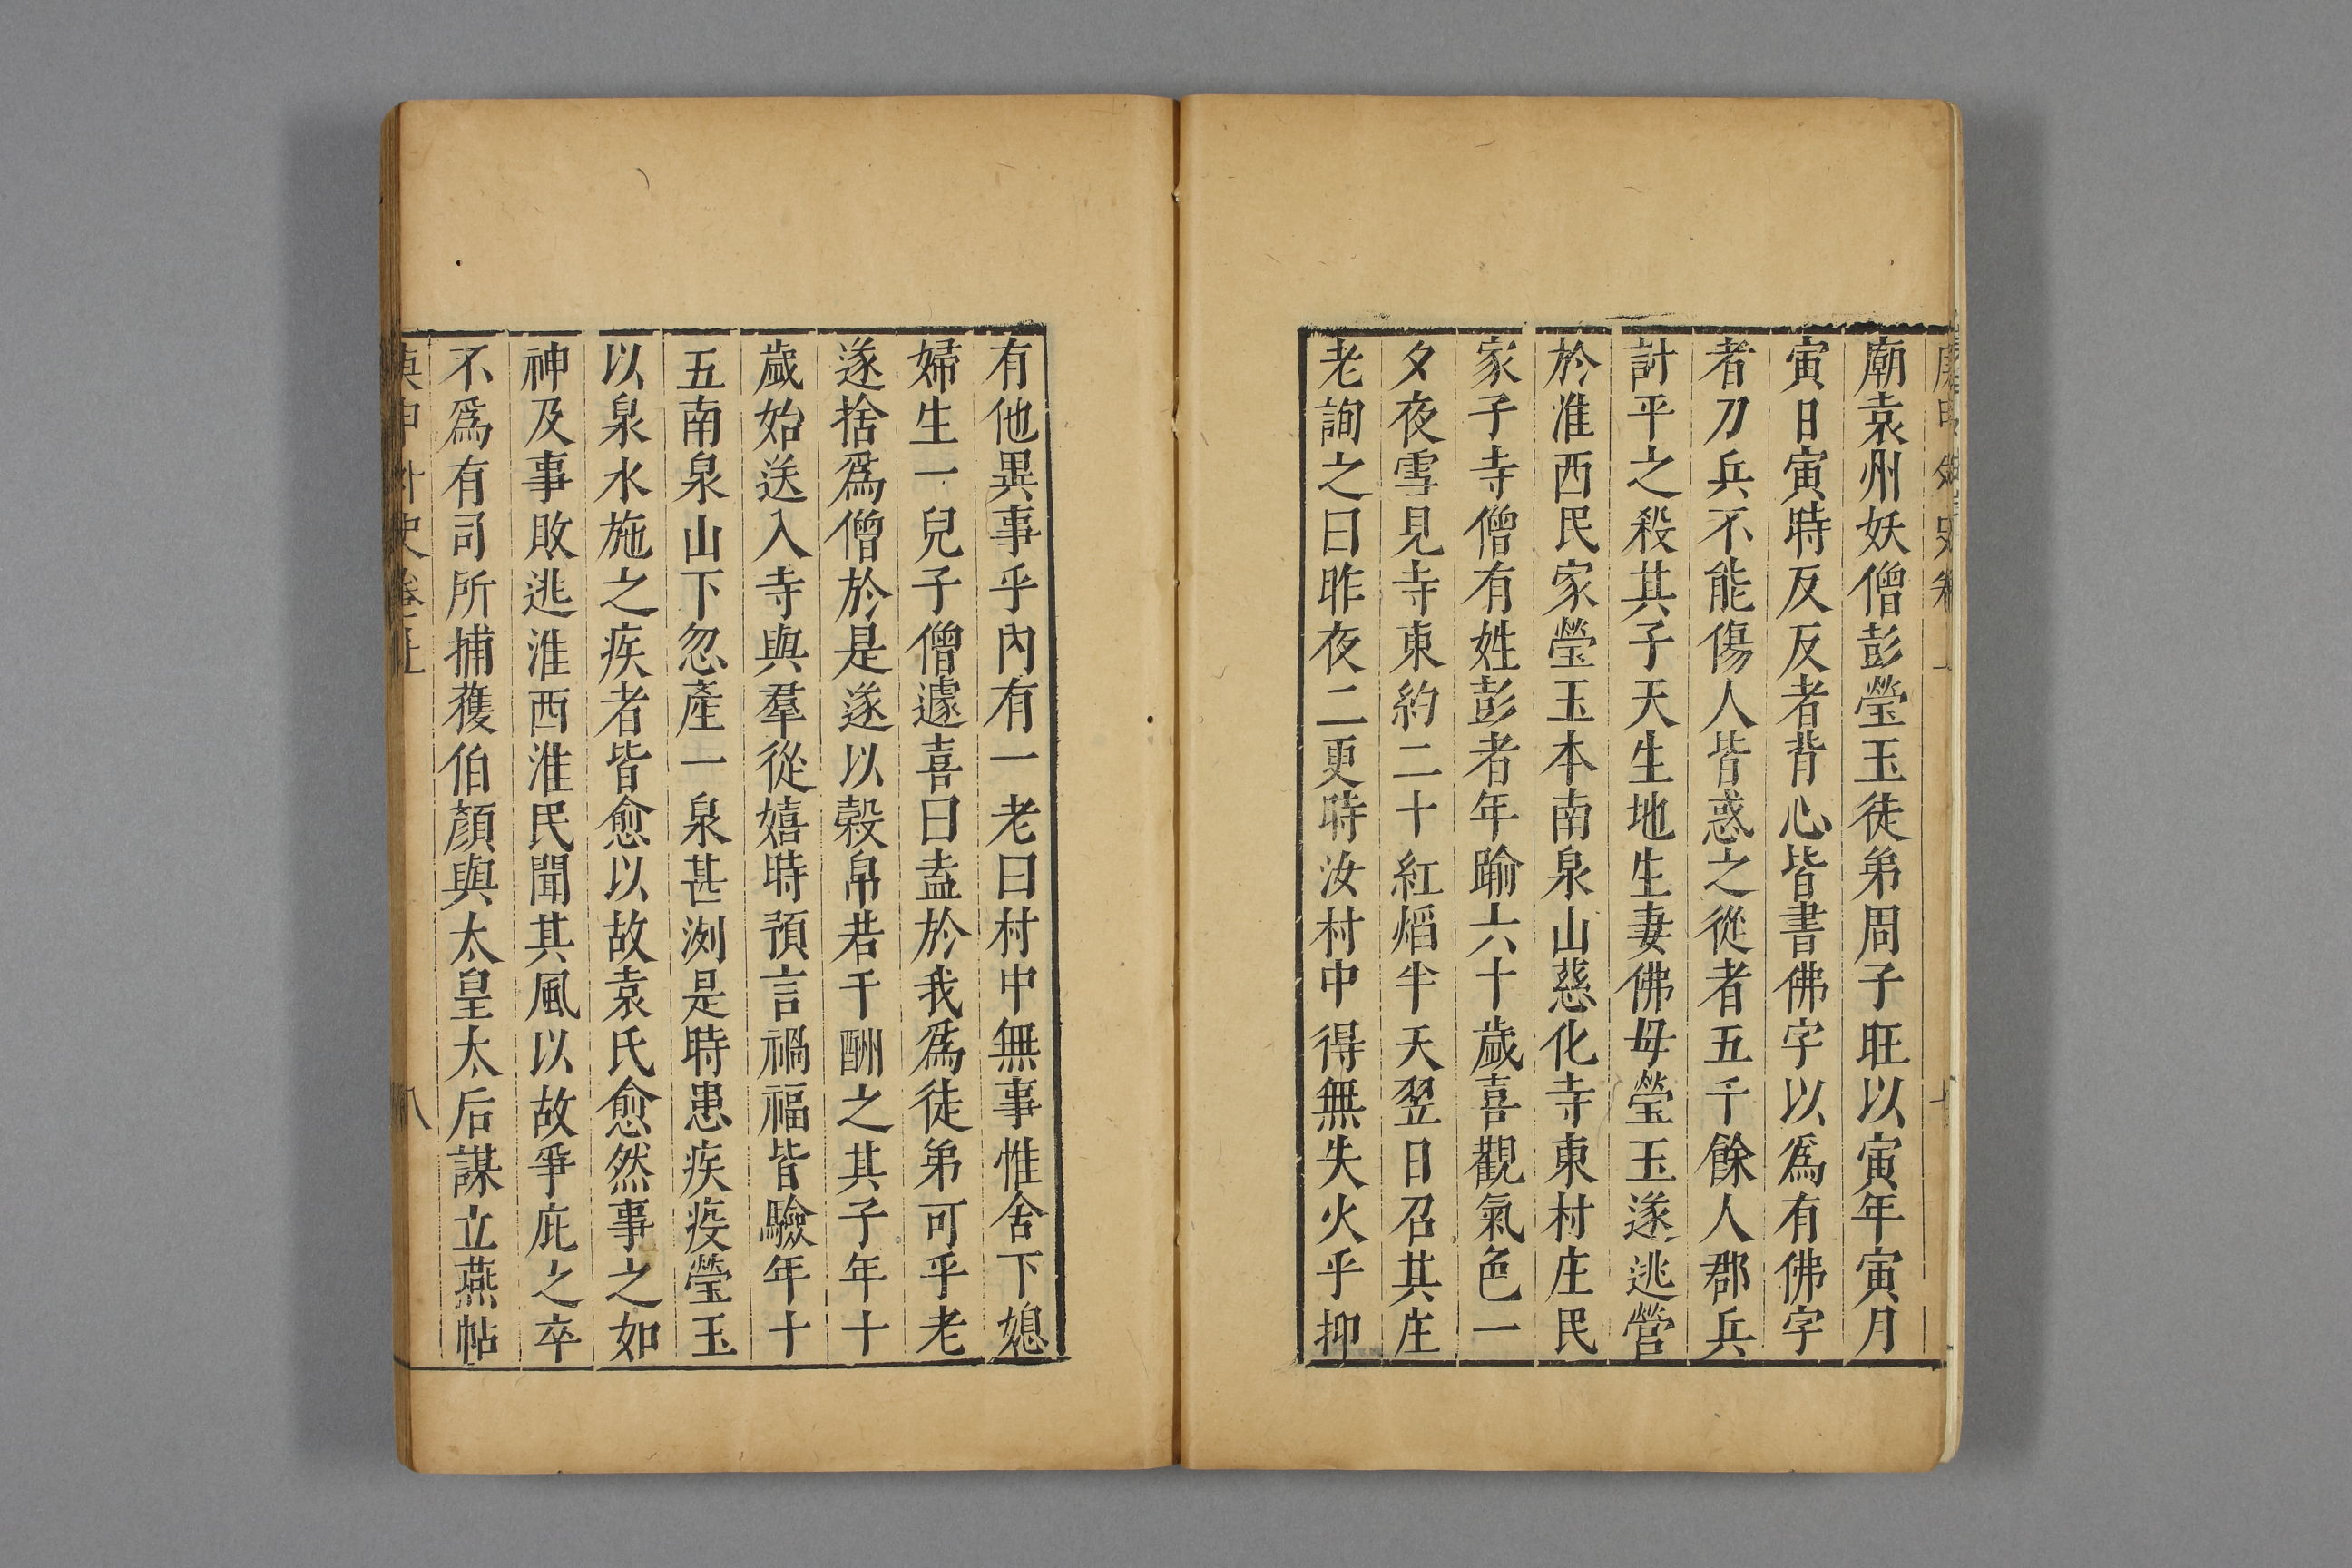 廟袁州妖僧彭瑩玉徒弟周子旺以寅年寅月
寅日寅時反反者背心皆書佛字以爲有佛字
者刀兵不能傷人皆惑之從者五千餘人郡兵
討平之殺其子天生地生妻佛母瑩玉遂逃營
於淮西民家瑩玉本南泉山慈化寺東村庄民
家子寺僧有姓彭者年踰六十歲喜觀氣色一
夕夜雪見寺東約二十紅熖半天翌日召其庄
老詢之曰昨夜二更時汝村中得無失火乎抑
有他異事乎內有一老曰村中無事惟舍下媳
婦生一兒子僧遽喜曰盍於我爲徒弟可乎老
遂捨爲僧於是遂以榖帛若干酬之其子年十
歲始送入寺與羣從嬉時預言禍福皆驗年十
五南泉山下忽產一泉甚洌是時患疾疫瑩玉
以泉水施之疾者皆愈以故袁氏愈然事之如
神及事敗逃淮西淮民聞其風以故爭庇之卒
不爲有司所捕獲伯顏與太皇太后謀立燕帖
庚申外史卷上 八